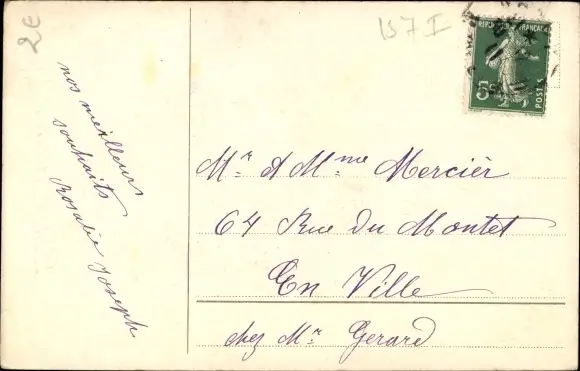 2e
157 I
REPUBLIQUE FRANCAISE
5c
POSTES
nos meilleurs
souhaits
Rosalie Joseph
Mr & Mme Mercier
64 Rue Du Montet
En Ville
chez Mr Gerard